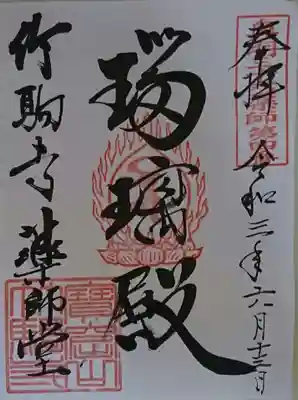 奉拝 令和三年六月十三日
瑠璃殿
竹駒寺 薬師堂